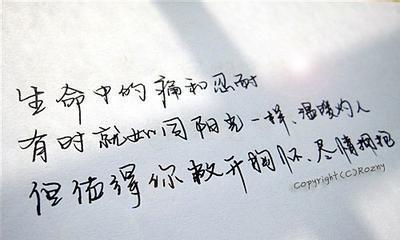 生命中的痛和忍耐
有时就如同阳光一样、温暖灼人
但值得你敞开胸怀、尽情拥抱
Copyright(C)Rozny